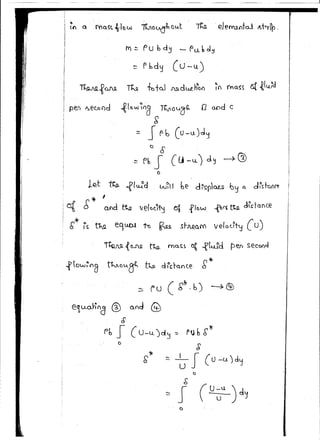 in a mass flow Throughout The elemental strip.
m = ρu b dy − ρu b dy
= ρ b dy (U-u)
Therefore The total reduction in mass of fluid
per second flowing Through B and c
= ∫₀^δ ρb (U-u)dy
= ρb ∫₀^δ (U-u) dy → ③
Let the fluid will be displaces by a distance
of δ* and the velocity of flow for the distance
δ* is the equal to free stream velocity (U)
Therefore the mass of fluid per second
flowing through the distance δ*
= ρU (δ*.b) → ④
equating ③ and ④
ρb ∫₀^δ (U-u)dy = ρUb δ*
δ* = 1/U ∫₀^δ (U-u)dy
= ∫₀^δ (U-u / U) dy